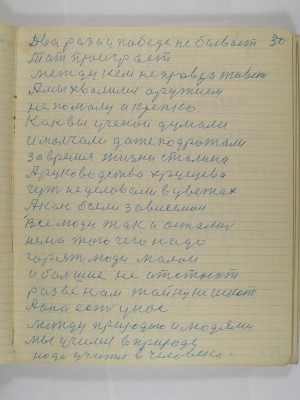 Два раза и победе не бывает 50
Тат проиграет
между кем не правда живет
А мы хвалился оружием
не помалу а крепко.
Как вы ученой думали
и молчали даже подрожали
за время жизни сталина
А руководство хрущева
чут не целовали в
А как были зависимой
Все люди так и остались
нема того чего надо
горят люди малой
и больше не отстают
разве нам тайну не шкот
А она есть у нас
между природою и людями
мы учились в природе
надо учится в человека -